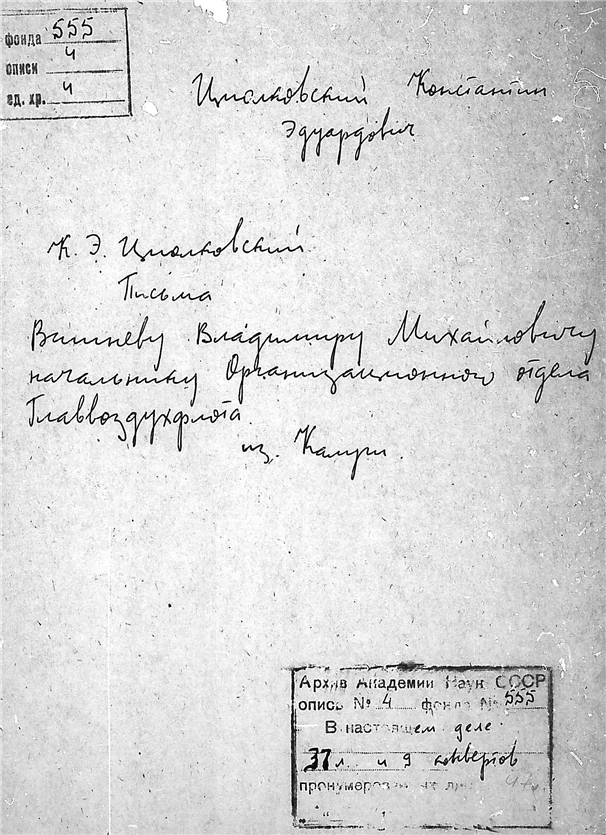 фонда 555
описи 4
ед. хр. 4
Циолковский Константин
Эдуардович
К. Э. Циолковский.
Письма
Вишневу Владимиру Михайловичу
начальнику Организационного отдела
Главвоздухфлота.
из. Калуги.
Архив Академии Наук СССР
опись № 4 фонда № 555
В настоящем деле
37 л. и 9 конвертов
пронумерованных